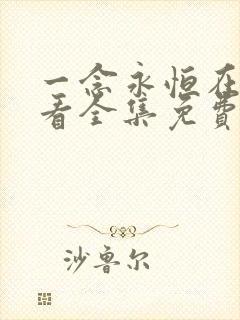 一念永恒在
看全集免费
沙鲁尔